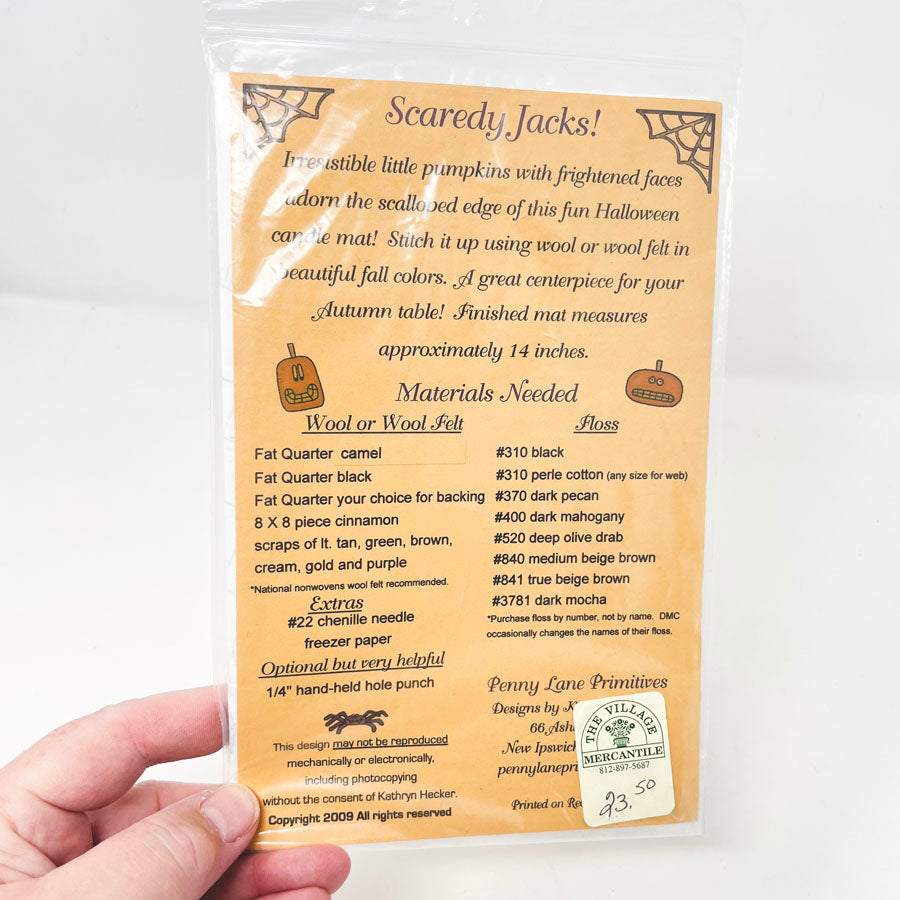 Scaredy Jacks!
Irresistible little pumpkins with frightened faces
adorn the scalloped edge of this fun Halloween
candle mat! Stitch it up using wool or wool felt in
beautiful fall colors. A great centerpiece for your
Autumn table! Finished mat measures
approximately 14 inches.
Materials Needed
Wool or Wool Felt
Fat Quarter camel
Fat Quarter black
Fat Quarter your choice for backing
8 X 8 piece cinnamon
scraps of lt. tan, green, brown,
cream, gold and purple
*National nonwovens wool felt recommended.
Extras
#22 chenille needle
freezer paper
Optional but very helpful
1/4" hand-held hole punch
This design may not be reproduced
mechanically or electronically,
including photocopying
without the consent of Kathryn Hecker.
Copyright 2009 All rights reserved
Floss
#310 black
#310 perle cotton (any size for web)
#370 dark pecan
#400 dark mahogany
#520 deep olive drab
#840 medium beige brown
#841 true beige brown
#3781 dark mocha
*Purchase floss by number, not by name. DMC
occasionally changes the names of their floss.
Penny Lane Primitives
Designs by
66
New Ipswich
Printed on
THE VILLAGE
MERCANTILE
812-897-5687
23.50